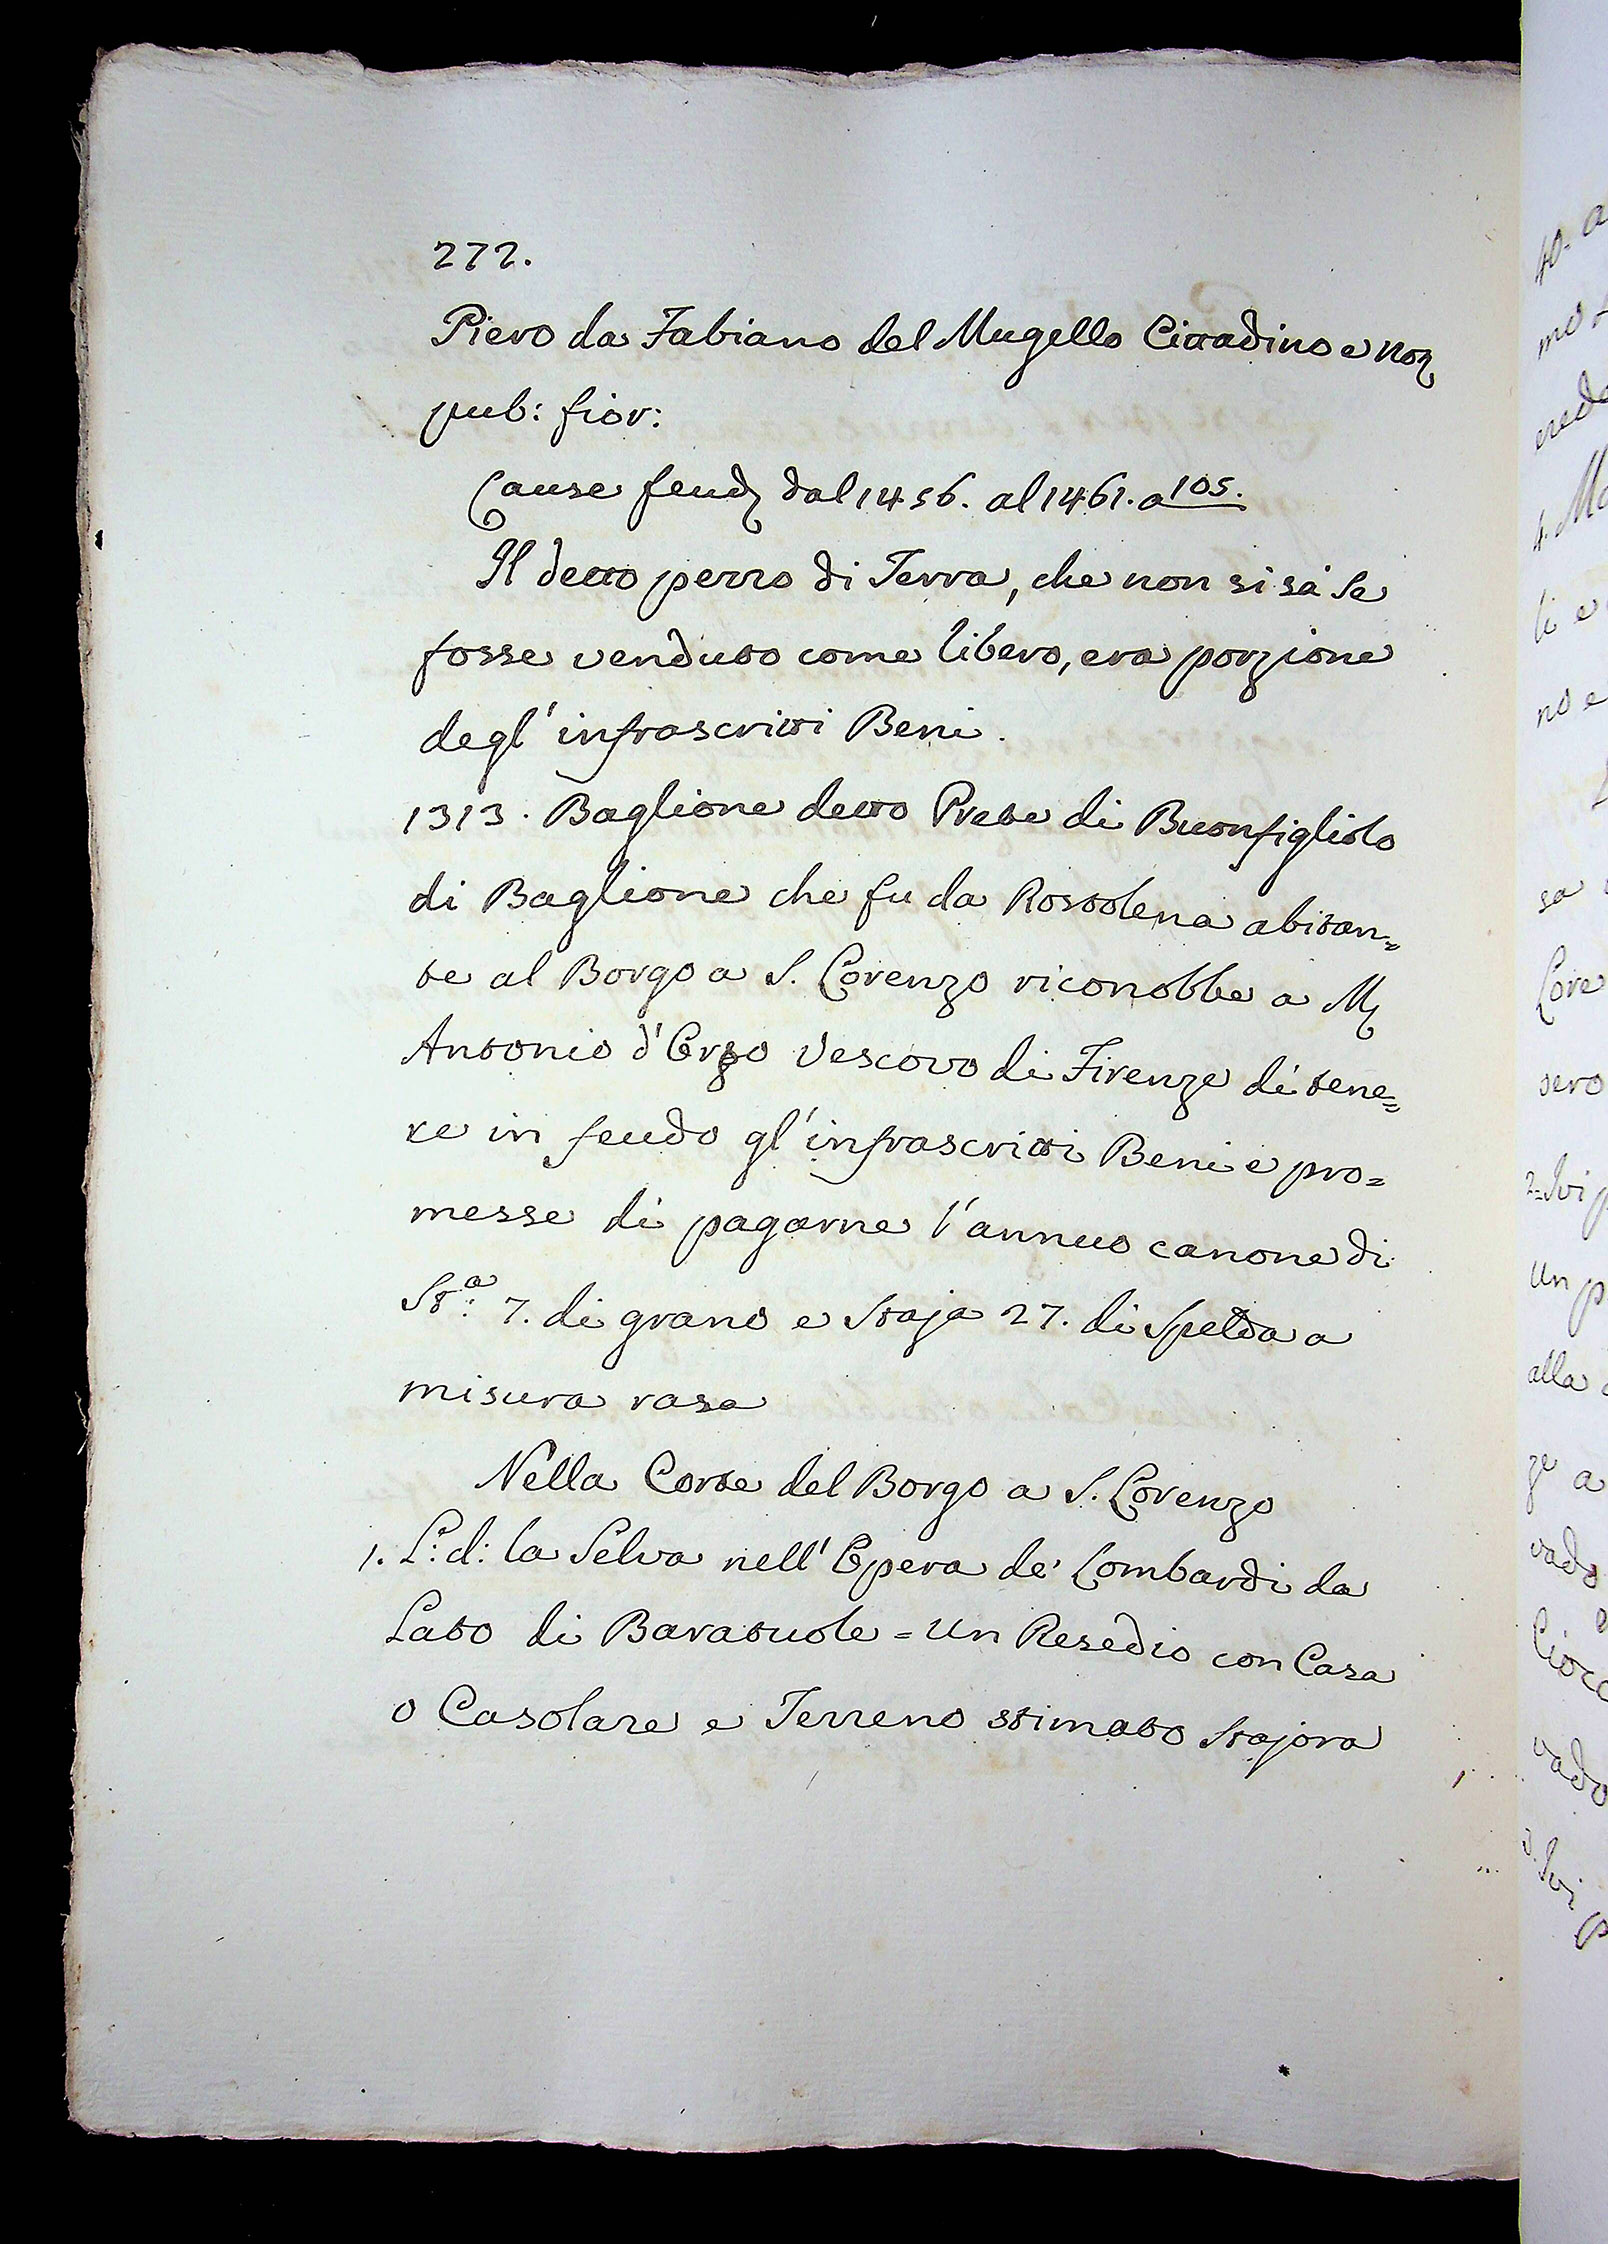 272.
Piero da Fabiano del Mugello Cittadino e Not
pub: fior:
Cause feud dal 1456. al 1461. a 105.
Il detto pezzo di Terra, che non si sà se
fosse venduto come libero, era porzione
degl' infrascritti Beni.
1313. Baglione detto Prete di Buonfigliolo
di Baglione che fu da Rostolena abitan=
te al Borgo a S. Lorenzo riconobbe a M
Antonio d'Orso Vescovo di Firenze di tene=
re in feudo gl' infrascritti Beni e pro=
messe di pagarne l'annuo canone di
St.ª 7. di grano e Staja 27. di Spelda a
misura rasa
Nella Corte del Borgo a S. Lorenzo
1. L: d: la Selva nell' Opera de' Lombardi da
Lato di Baratuole = Un Resedio con Casa
o Casolare e Terreno stimato Stajora